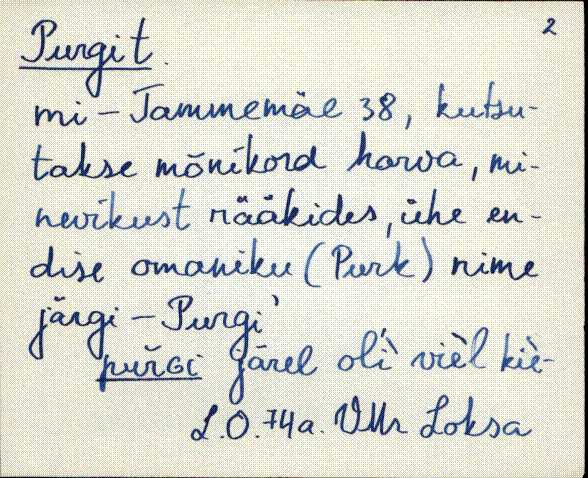 2
Purgit.
mi – Tammemäe 38, kutsu-
takse mõnikord harva, mi-
nevikust rääkides, ühe en-
dise omaniku (Purk) nime
järgi – Purgi'
pur̆ɢi järel oĺi vièl kiè-
L.O. 74a. VMr Loksa